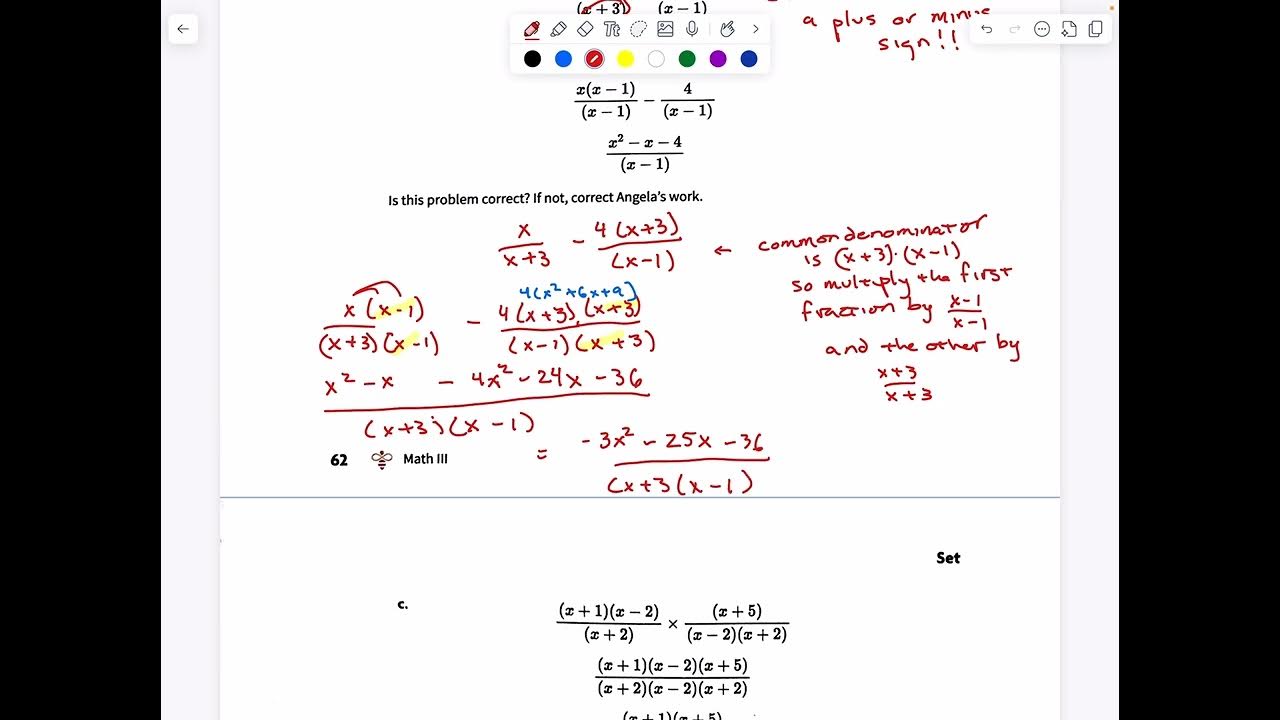 (x + 3) (x − 1)
a plus or minus
sign!!
Tt
x(x − 1)/(x − 1) − 4/(x − 1)
(x² − x − 4)/(x − 1)
Is this problem correct? If not, correct Angela's work.
x/(x+3) − 4(x+3)/(x−1) ←
common denominator
is (x+3)·(x−1)
so multiply the first
fraction by (x−1)/(x−1)
and the other by
(x+3)/(x+3)
4(x²+6x+9)
x(x−1)/(x+3)(x−1) − 4(x+3)·(x+3)/(x−1)(x+3)
x² − x − 4x² − 24x − 36
(x+3)(x−1)
= −3x² − 25x − 36
(x+3(x−1)
62 Math III
Set
c.
(x + 1)(x − 2)/(x + 2) × (x + 5)/(x − 2)(x + 2)
(x + 1)(x − 2)(x + 5)/(x + 2)(x − 2)(x + 2)
(x + 1)(x + 5)